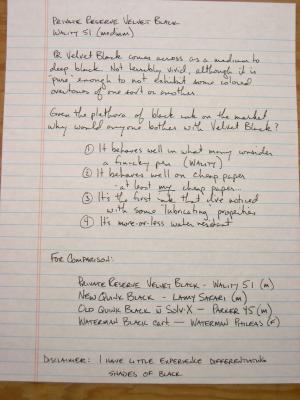 PRIVATE RESERVE VELVET BLACK
WALITY 51 (medium)
PR Velvet Black comes across as a medium to
deep black. Not terribly vivid, although it is
"pure" enough to not exhibit some colored
overtones of one sort or another.
Given the plethora of black inks on the market
why would anyone bother with Velvet Black?
① It behaves well in what many consider
a finicky pen (WALITY)
② It behaves well on cheap paper
- at least my cheap paper...
③ It's the first ink that I've noticed
with some lubricating properties
④ It's more-or-less water resistant
FOR COMPARISON:
PRIVATE RESERVE VELVET BLACK - WALITY 51 (m)
NEW QUINK BLACK - LAMY SAFARI (m)
OLD QUINK BLACK w SOLV-X — PARKER 45 (m)
WATERMAN BLACK cart — WATERMAN PHILEAS (F)
DISCLAIMER: I HAVE LITTLE EXPERIENCE DIFFERENTIATING
SHADES OF BLACK